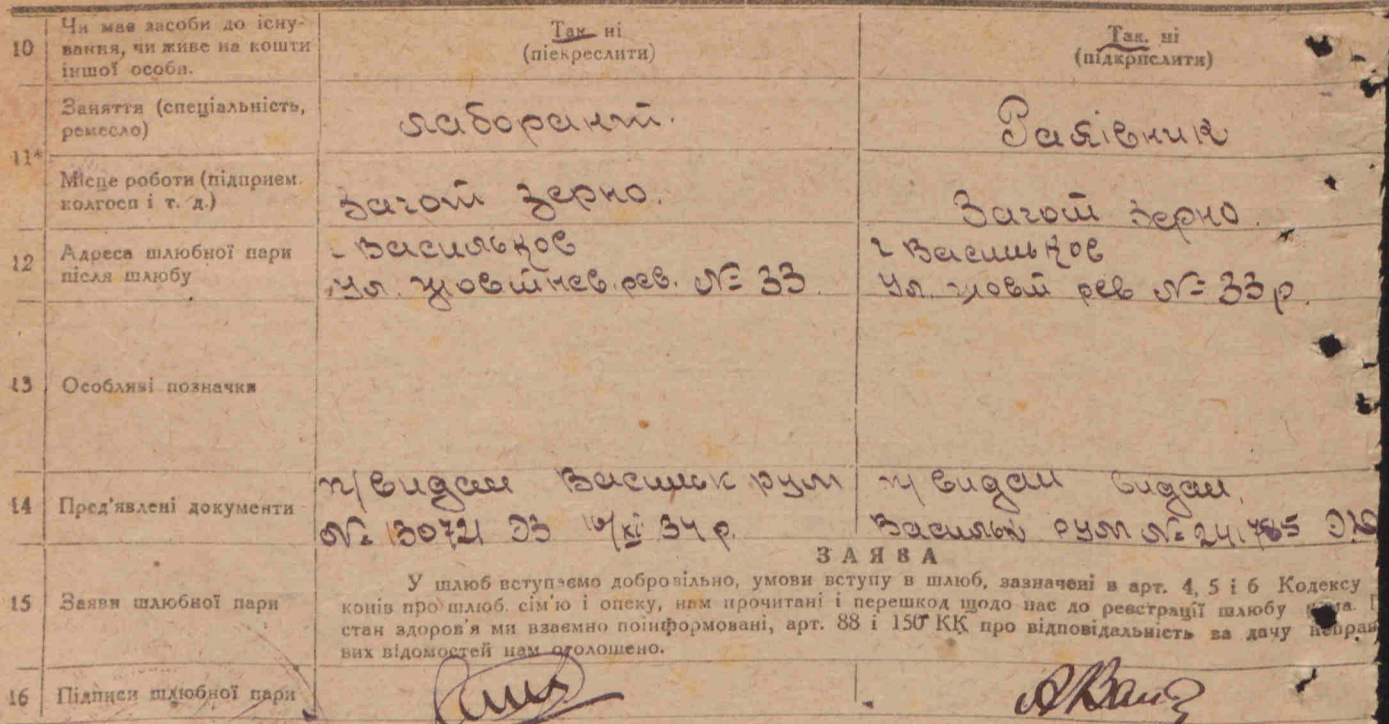 10
Чи має засоби до існу-
вання, чи живе на кошти
іншої особи.
Так. ні
(піекреслити)
Так. ні
(підкрпслити)
11*
Заняття (спеціальність,
ремесло)
лаборант.
Рахівник
Місце роботи (підприєм.
колгосп і т. д.)
Загот зерно.
Загот зерно.
12
Адреса шлюбної пари
після шлюбу
г Васильков
г Васильков
Ул. жовтнев. рев. № 33.
Ул. жовт рев № 33 р
13
Особливі позначки
14
Пред'явлені документи
п/видан Васильк рум
п/ видан видан,
№ 130721 ЭЗ 10/XI 34 р.
Васильк рум № 241785
15
Заяви шлюбної пари
ЗАЯВА
У шлюб вступаємо добровільно, умови вступу в шлюб, зазначені в арт. 4, 5 і 6 Кодексу
конів про шлюб. сім'ю і опеку, нам прочитані і перешкод щодо нас до реєстрації шлюбу
стан здоров'я ми взаємно поінформовані, арт. 88 і 150 КК про відповідальність за дачу неправ
вих відомостей нам оголошено.
16
Підписи шлюбної пари